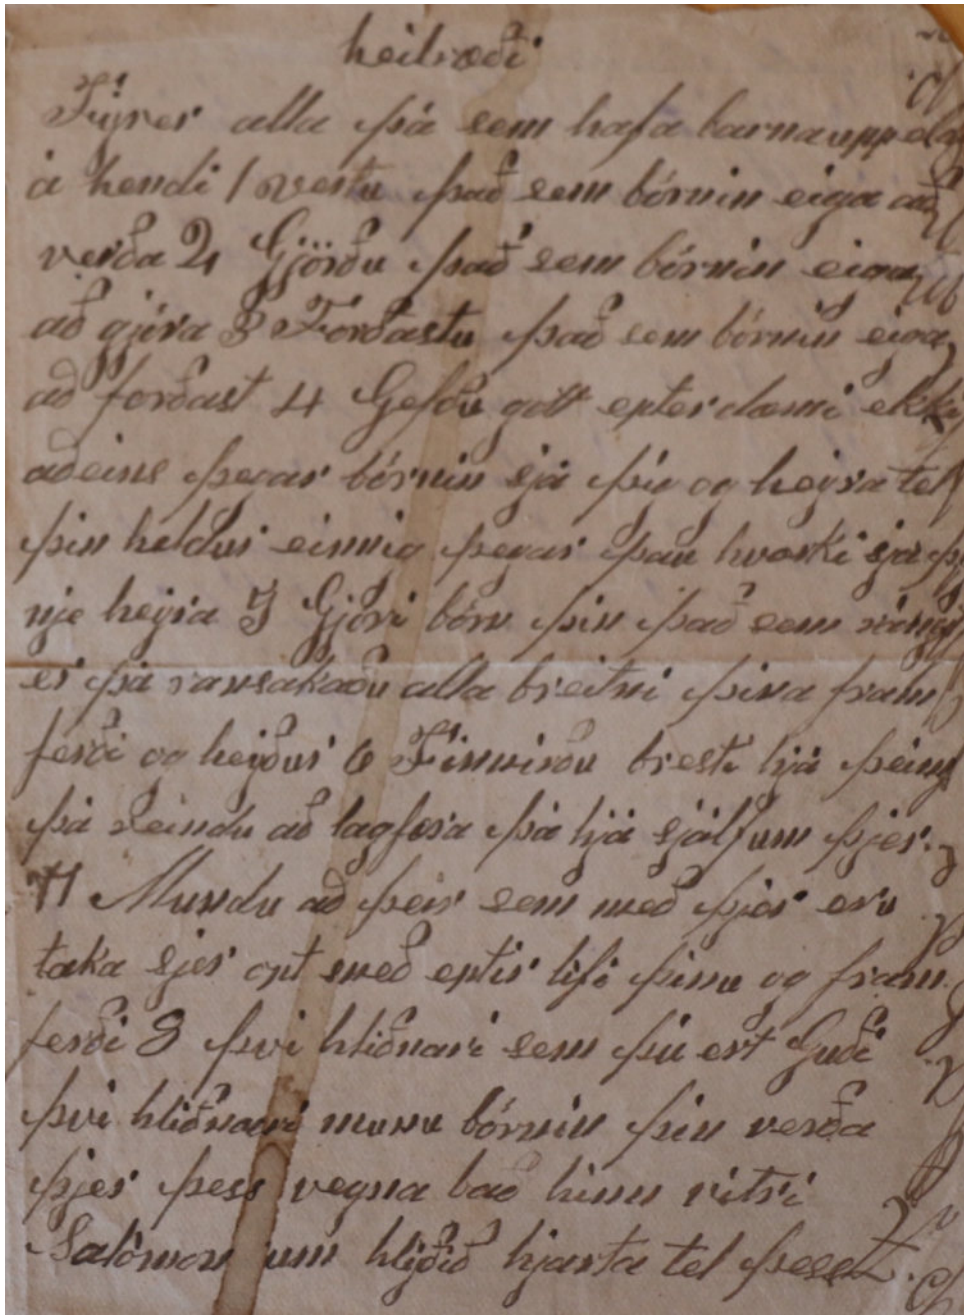 heilræði
Fyrer alla þá sem hafa barnauppeld
á hendi 1 vertu það sem börnin eiga að
verða 2 Gjörðu það sem börnin eiga
að gjöra 3 Forðastu það sem börnin eiga
að forðast 4 Gefðu gott epterdæmi ekki
aðeins þegar börnin sjá þig og heyra tel
þin heldur einnig þegar þau hvorki sjá þ
nje heyra 5 Gjöri börn þin það sem rángt
er þá ransakaðu alla breitni þina fram
ferði og heiður 6 Finnirðu bresti hjá þeim
þá reindu að lagfæra þá hjá sjálfum þjer.
7 Mundu að þeir sem með þjer eru
taka sjer opt með eptir lifi þinu og fram
ferði 8 þvi hliðnari sem þú ert Guði
þvi hliðnari munu börnin þin verða
þjer þess vegna bað hinn vitri
Salómon um hlijðið hjarta tel þess